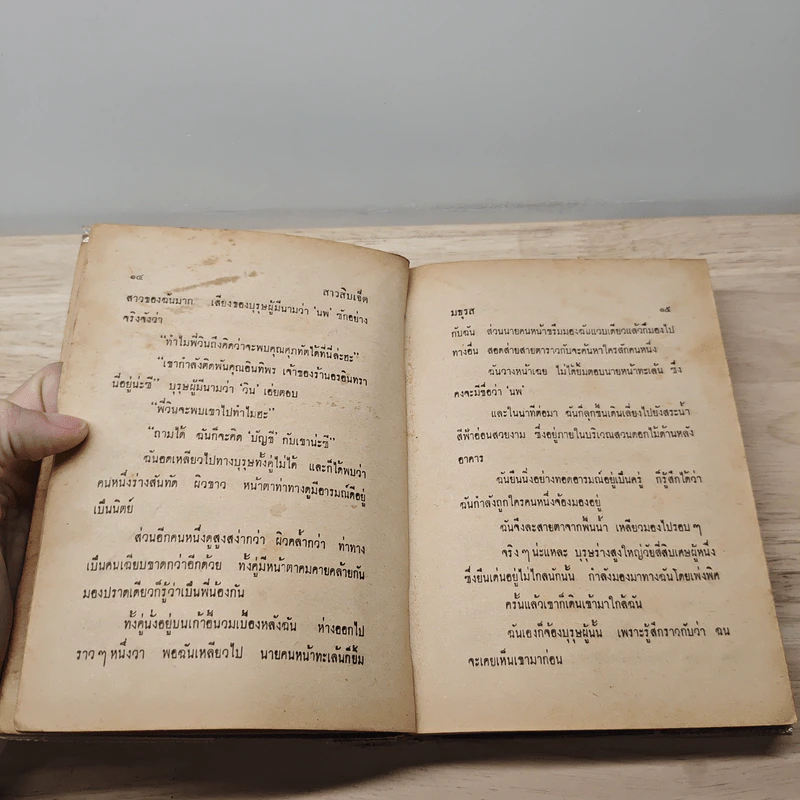 ๑๔ สาวสิบเจ็ด
สาวของฉันมาก เสียงของบุรุษผู้มีนามว่า 'นพ' ซักอย่าง
จริงจังว่า
"ทำไมพี่วินถึงคิดว่าจะพบคุณศุภทัตได้ที่นี่ล่ะฮะ"
"เขากำลังติดพันคุณอินทิพร เจ้าของร้านอรอินทรา
นี่อยู่น่ะซี" บุรุษผู้มีนามว่า 'วิน' เอ่ยตอบ
"พี่วินจะพบเขาไปทำไมฮะ"
"ถามได้ ฉันก็จะคิด 'บัญชี' กับเขาน่ะซี"
ฉันอดเหลียวไปทางบุรุษทั้งคู่ไม่ได้ และก็ได้พบว่า
คนหนึ่งร่างสันทัด ผิวขาว หน้าตาท่าทางดูมีอารมณ์ดีอยู่
เป็นนิตย์
ส่วนอีกคนหนึ่งดูสูงสง่ากว่า ผิวคล้ำกว่า ท่าทาง
เป็นคนเฉียบขาดกว่าอีกด้วย ทั้งคู่มีหน้าตาคมคายคล้ายกัน
มองปราดเดียวก็รู้ว่าเป็นพี่น้องกัน
ทั้งคู่นั่งอยู่บนเก้าอี้นวมเบื้องหลังฉัน ห่างออกไป
ราว ๆ หนึ่งวา พอฉันเหลียวไป นายคนหน้าทะเล้นก็ยิ้ม
มธุรส ๑๕
กับฉัน ส่วนนายคนหน้าขรึมมองฉันแวบเดียวแล้วก็มองไป
ทางอื่น สอดส่ายสายตาราวกับจะค้นหาใครสักคนหนึ่ง
ฉันวางหน้าเฉย ไม่ได้ยิ้มตอบนายหน้าทะเล้น ซึ่ง
คงจะมีชื่อว่า 'นพ'
และในนาทีต่อมา ฉันก็ลุกขึ้นเดินเลี่ยงไปยังสระน้ำ
สีฟ้าอ่อนสวยงาม ซึ่งอยู่ภายในบริเวณสวนดอกไม้ด้านหลัง
อาคาร
ฉันยืนนิ่งอย่างทอดอารมณ์อยู่เป็นครู่ ก็รู้สึกได้ว่า
ฉันกำลังถูกใครคนหนึ่งจ้องมองอยู่
ฉันจึงละสายตาจากพื้นน้ำ เหลียวมองไปรอบ ๆ
จริง ๆ น่ะแหละ บุรุษร่างสูงใหญ่วัยสี่สิบเศษผู้หนึ่ง
ซึ่งยืนเด่นอยู่ไม่ไกลนักนั้น กำลังมองมาทางฉันโดยเพ่งพิศ
ครั้นแล้วเขาก็เดินเข้ามาใกล้ฉัน
ฉันเองก็จ้องบุรุษผู้นั้น เพราะรู้สึกราวกับว่า ฉัน
จะเคยเห็นเขามาก่อน